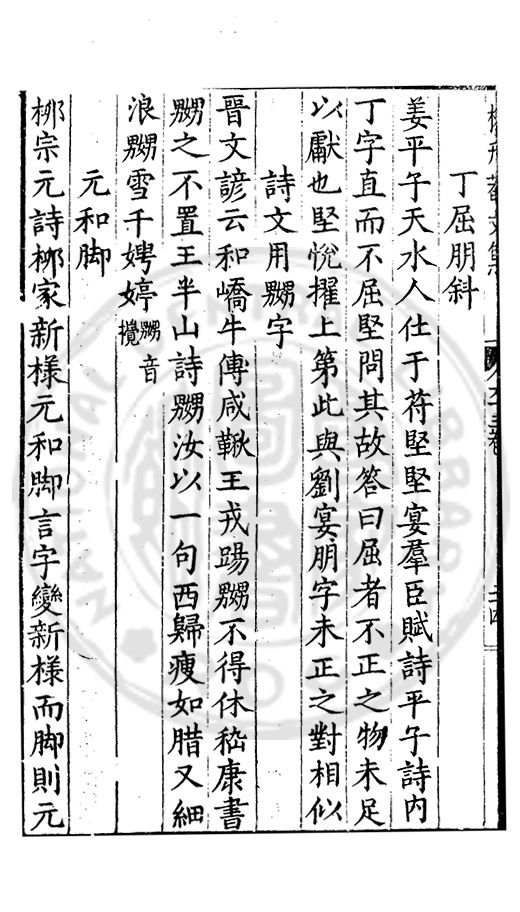 丁屈朋斜
姜平子天水人仕于苻堅堅宴羣臣賦詩平子詩內
丁字直而不屈堅問其故答曰屈者不正之物未足
以獻也堅悅擢上第此與劉宴朋字未正之對相似
詩文用嬲字
晉文諺云和嶠牛傳咸鞦王戎踢嬲不得休嵇康書
嬲之不置王半山詩嬲汝以一句西歸瘦如腊又細
浪嬲雪千娉婷嬲音攪
元和脚
柳宗元詩栁家新樣元和脚言字變新樣而脚則元